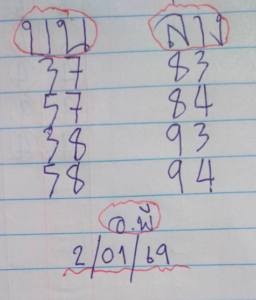 บน ล่าง
37 83
57 84
38 93
58 94
อ.พี
2/01/69